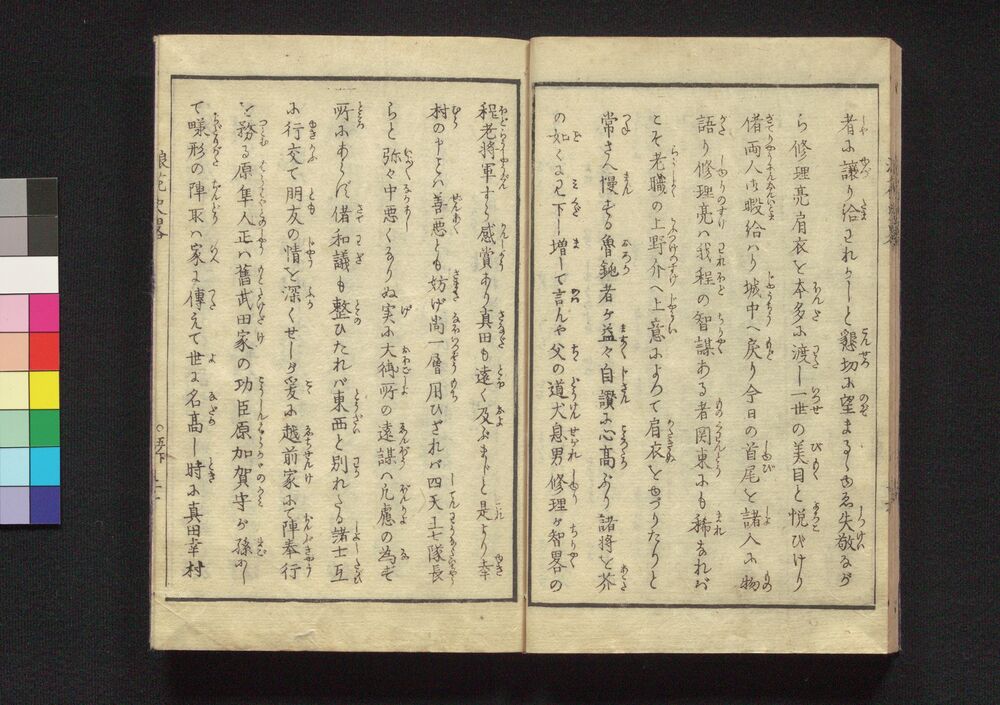 者に譲り給はれかしと懇切に望まるゝゆゑ失敬なが
ら修理亮肩衣を本多に渡し一世の美目と悦びけり
偖両人は暇給はり城中へ戻り今日の首尾を諸人に物
語り修理亮は我程の智謀ある者関東にも稀なれば
こそ老職の上野介へ上意によつて肩衣をゆづりたりと
常さへ慢ずる魯鈍者が益々自讃に心高ぶり諸将を芥
の如くに見下し増して言んや父の道犬息男修理が智畧の
程老将軍すら感賞あり真田も遠く及ぶまじと是より幸
村の申すは善悪とも妨げ尚一層用ひざれば四天王七隊長
らと弥々中悪くなりぬ実に大御所の遠謀は凡慮の為ず
所にあらず偖和議も整ひたれば東西と別れたる諸士互
に行交て朋友の情を深くせしが爰に越前家にて陣奉行
を務る原隼人正は舊武田家の功臣原加賀守が孫にし
て畷形の陣取は家に傳えて世に名高し時に真田幸村